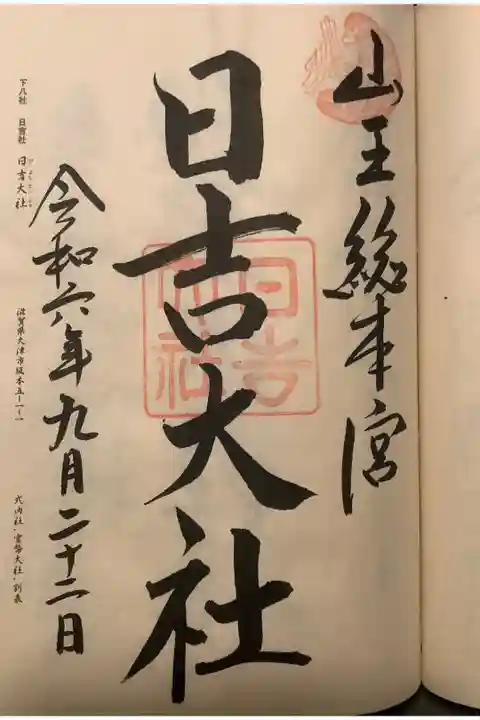 山王総本宮
日吉大社
日吉大社
令和六年九月二十二日
下八社 日吉社 日吉大社
滋賀県大津市坂本五-一-一
式内社・官幣大社・別表